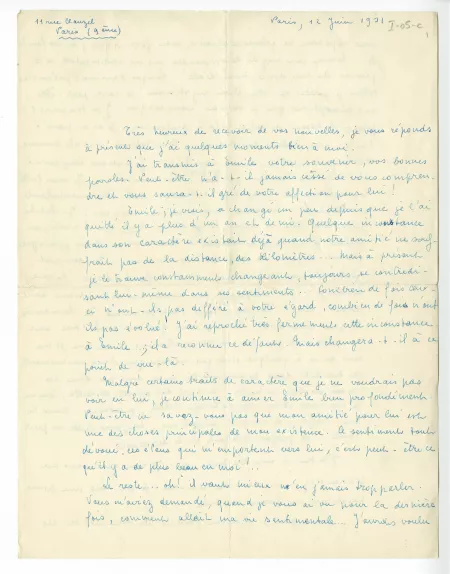 11 rue Clauzel
Paris (9ème)
Paris, 12 Juin 1931
I-05-c
1
Très heureux de recevoir de vos nouvelles, je vous réponds
à présent que j'ai quelques moments bien à moi.
J'ai transmis à Emile votre souvenir, vos bonnes
paroles. Peut-être n'a-t-il jamais cessé de vous compren-
dre et vous saura-t-il gré de votre affection pour lui !
Emile, je crois, a changé un peu depuis que je l'ai
quitté il y a plus d'un an et demi. Quelque inconstance
dans son caractère existait déjà quand notre amitié ne souf-
frait pas de la distance, des kilomètres... Mais à présent
je le trouve constamment changeant, toujours se contredi-
sant lui-même dans ses sentiments... Combien de fois ceux-
ci n'ont-ils pas différé à votre égard, combien de fois n'ont
ils pas évolué ! J'ai reproché très fermement cette inconstance
à Emile ; il a reconnu ce défaut. Mais changera-t-il à ce
point de vue-là.
Malgré certains traits de caractère que je ne voudrais pas
voir en lui, je continue à aimer Emile bien profondément.
Peut-être ne savez-vous pas que mon amitié pour lui est
une des choses principales de mon existence. Le sentiment tout
dévoué, ces élans qui m'emportent vers lui, c'est peut-être ce
qu'il y a de plus beau en moi !...
Le reste... oh ! il vaut mieux ne'en jamais trop parler.
Vous m'aviez demandé, quand je vous ai vu pour la dernière
fois, comment allait ma vie sentimentale... J'aurais voulu